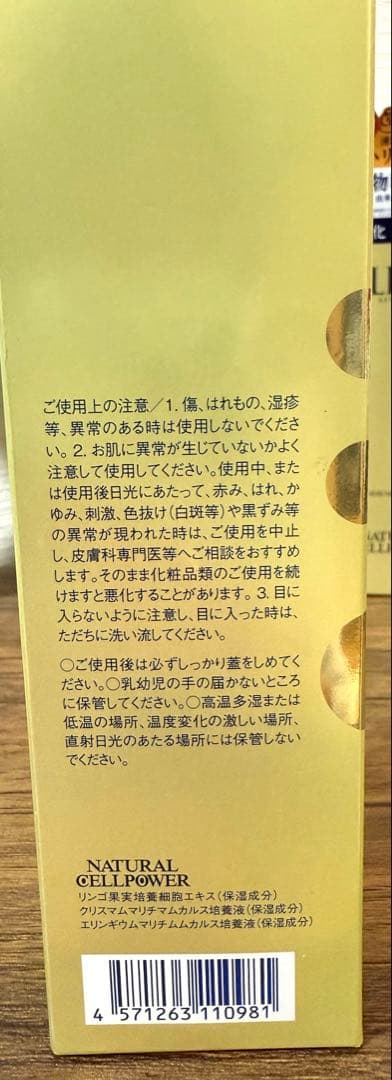 ご使用上の注意／1. 傷、はれもの、湿疹
等、異常のある時は使用しないでくださ
い。2. お肌に異常が生じていないかよく
注意して使用してください。使用中、また
は使用後日光にあたって、赤み、はれ、か
ゆみ、刺激、色抜け(白斑等)や黒ずみ等
の異常が現われた時は、ご使用を中止
し、皮膚科専門医等へご相談をおすすめ
します。そのまま化粧品類のご使用を続
けますと悪化することがあります。3. 目に
入らないように注意し、目に入った時は、
ただちに洗い流してください。
○ご使用後は必ずしっかり蓋をしめてく
ださい。○乳幼児の手の届かないところ
に保管してください。○高温多湿または
低温の場所、温度変化の激しい場所、
直射日光のあたる場所には保管しない
でください。
NATURAL
CELLPOWER
リンゴ果実培養細胞エキス(保湿成分)
クリスマムマリチマムカルス培養液(保湿成分)
エリンギウムマリチムムカルス培養液(保湿成分)
4 571263 110981
物
化